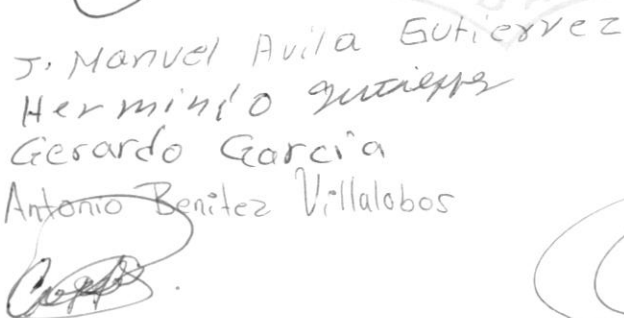 J. Manuel Avila Gutierrez
Herminio gutierrez
Gerardo Garcia
Antonio Benitez Villalobos